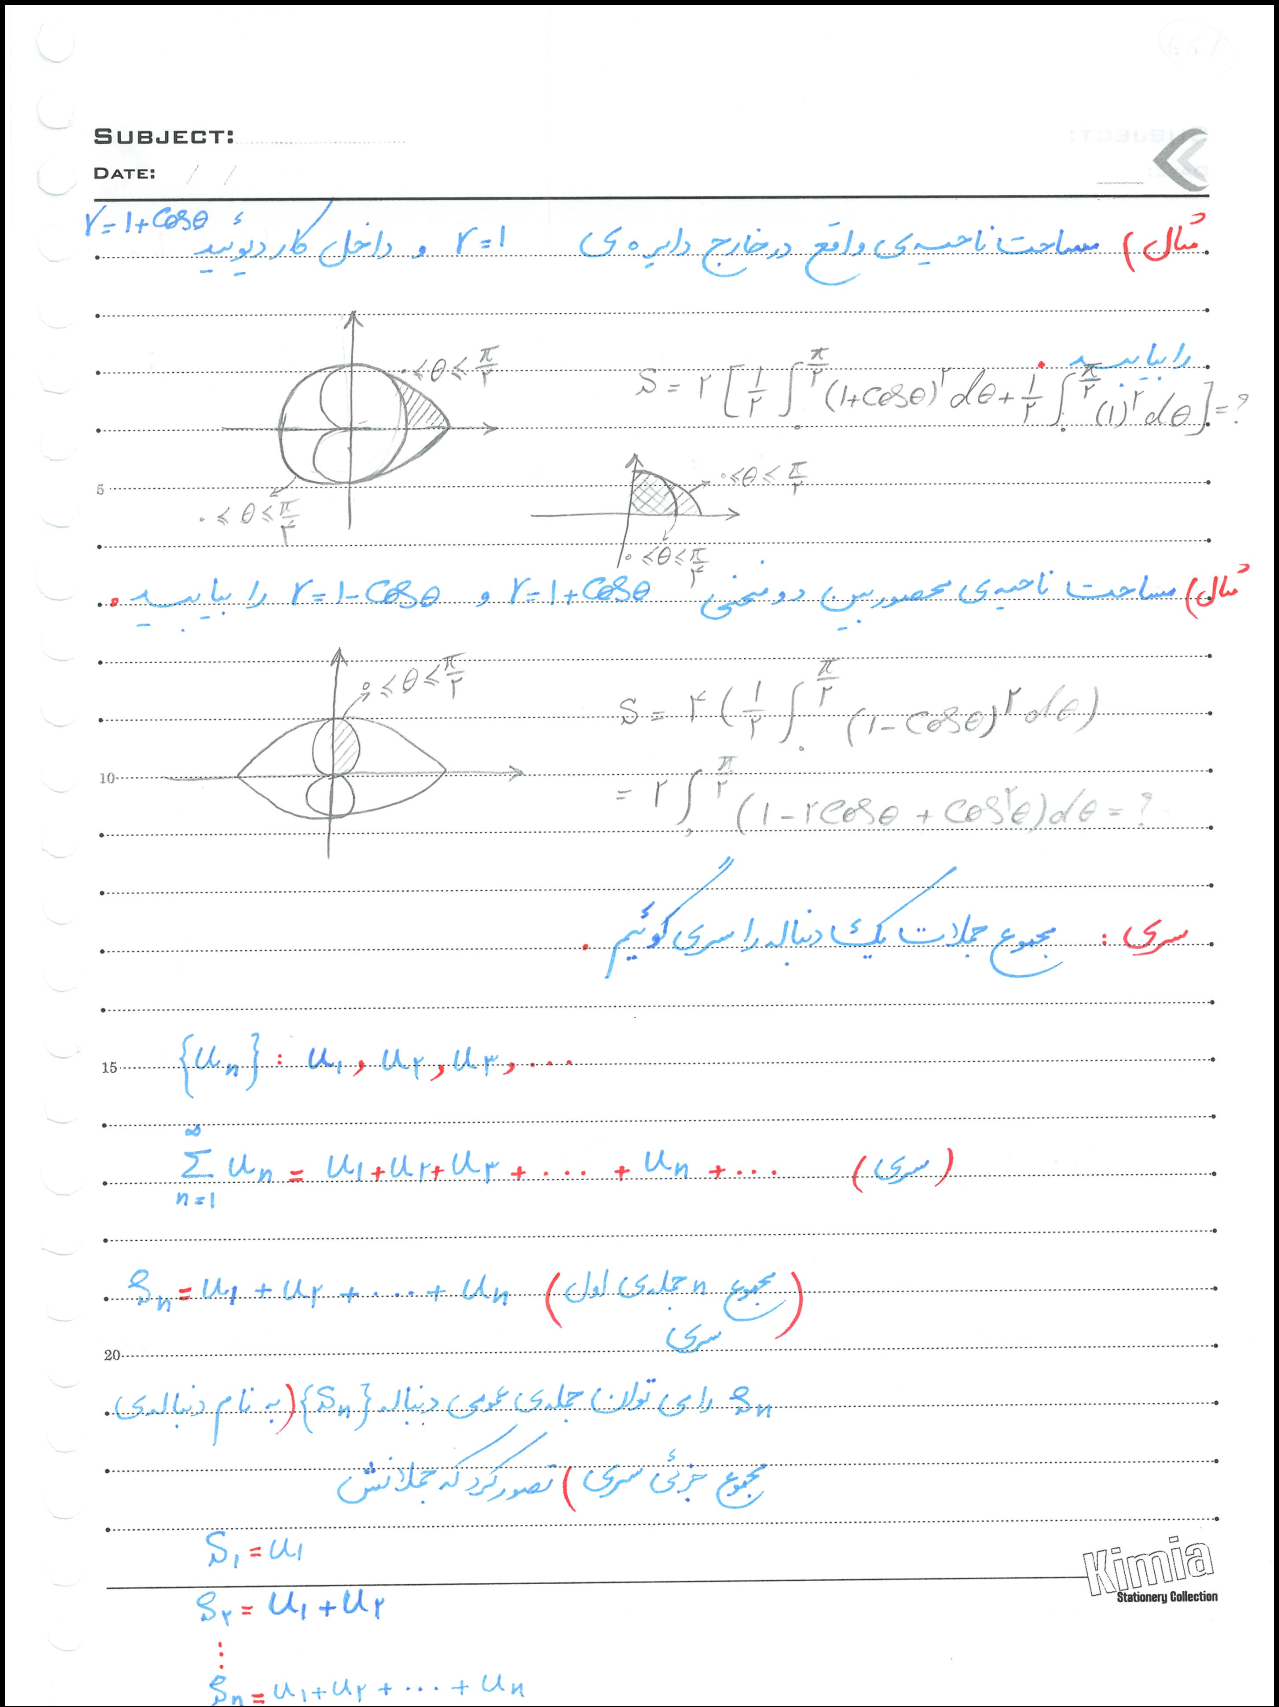 SUBJECT:
DATE: / /
مثال) مساحت ناحیه‌ی واقع در خارج دایره‌ی r=1 و داخل کاردیوئید r=1+cosθ
را بیابید.
0≤θ≤π/۲
S = ۲[1/۲ ∫₀^{π/۲} (1+cosθ)^۲ dθ + 1/۲ ∫₀^{π/۲} (1)^۲ dθ] = ?
5
0≤θ≤π/۲
0≤θ≤π/۲
0≤θ≤π/۲
مثال) مساحت ناحیه‌ی محصور بین دو منحنی r=1+cosθ و r=1-cosθ را بیابید.
0≤θ≤π/۲
S = ۴(1/۲ ∫₀^{π/۲} (1-cosθ)^۲ dθ)
10
= ۲ ∫₀^{π/۲} (1-۲cosθ+cos^۲θ)dθ = ?
سری: مجموع جملات یک دنباله را سری گوئیم.
15
{u_n}: u_۱, u_۲, u_۳, ...
∑_{n=1}^{∞} u_n = u_۱+u_۲+u_۳+...+u_n+... (سری)
S_n = u_۱+u_۲+...+u_n (مجموع n جمله‌ی اول
سری)
20
S_n را می توان جمله‌ی عمومی دنباله {S_n} (به نام دنباله‌ی
مجموع جزئی سری) تصور کرد که جملاتش
S_۱ = u_۱
Kimia
Stationery Collection
S_۲ = u_۱+u_۲
⋮
S_n = u_۱+u_۲+...+u_n